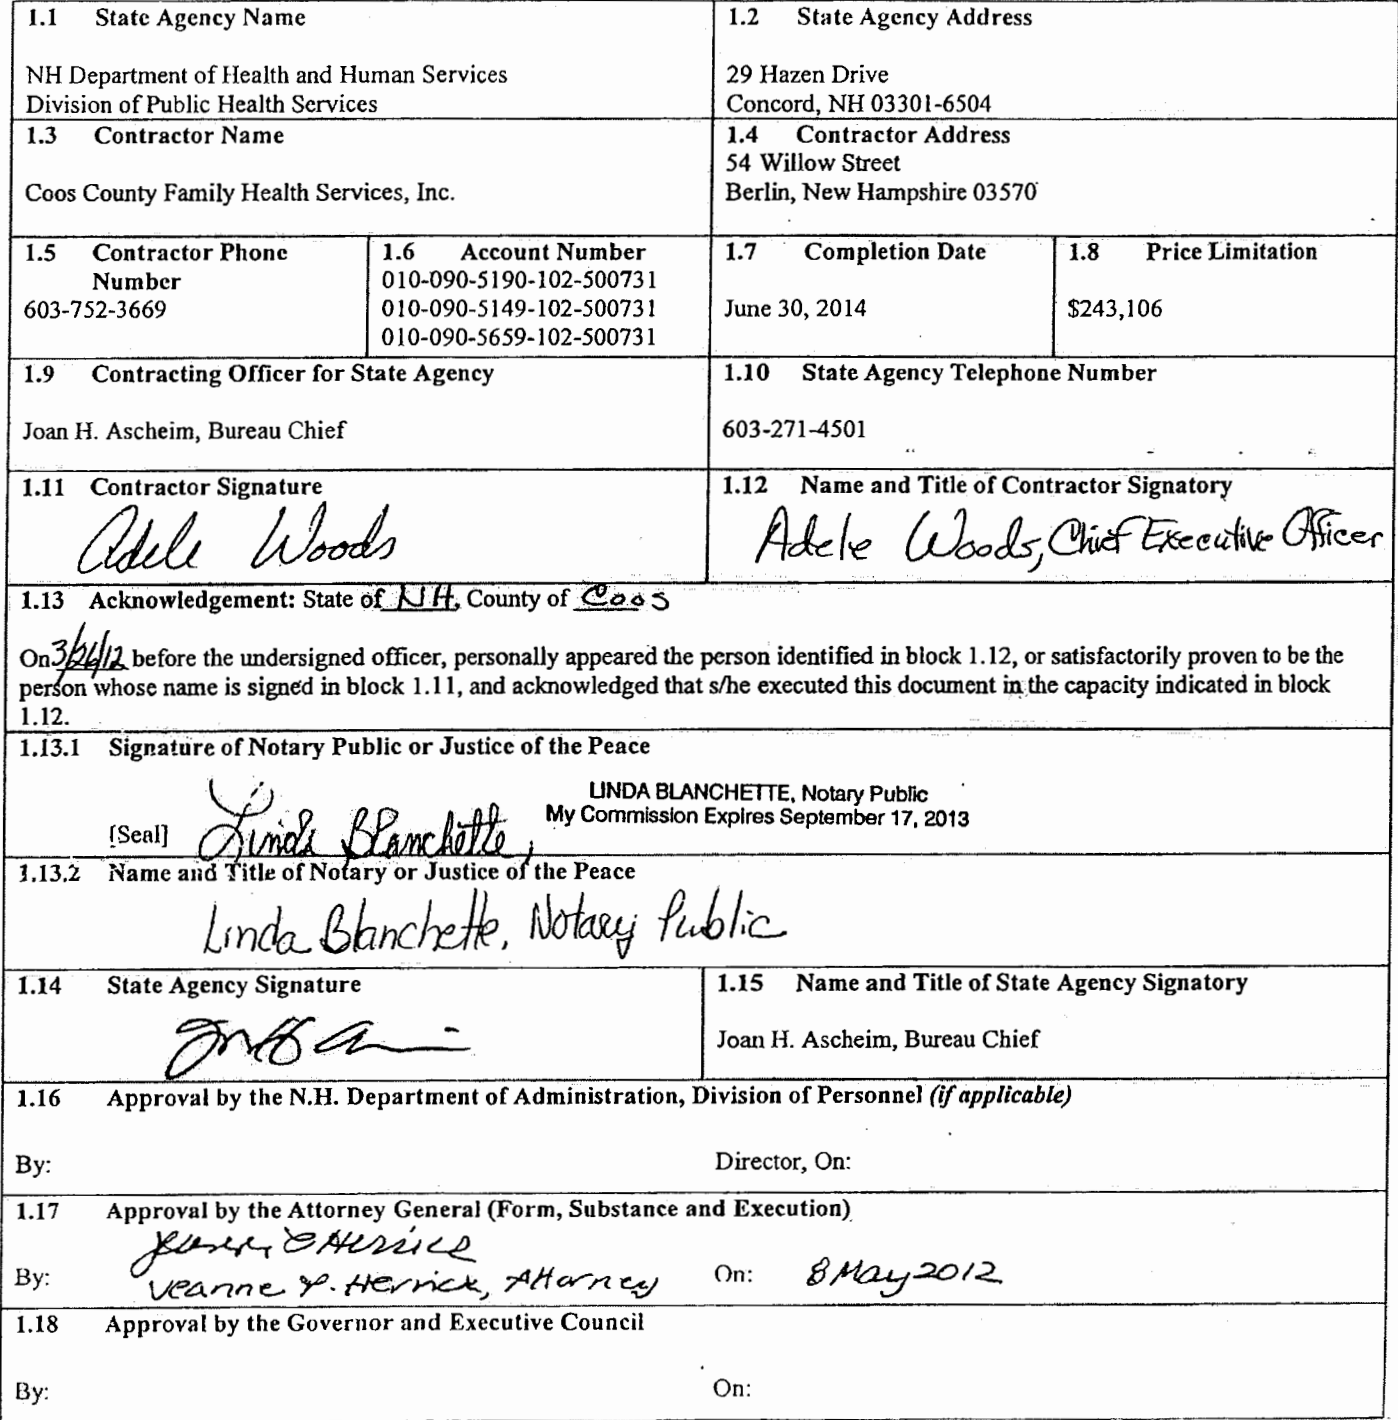 1.1 State Agency Name
NH Department of Health and Human Services
Division of Public Health Services
1.2 State Agency Address
29 Hazen Drive
Concord, NH 03301-6504
1.3 Contractor Name
Coos County Family Health Services, Inc.
1.4 Contractor Address
54 Willow Street
Berlin, New Hampshire 03570
1.5 Contractor Phone
Number
603-752-3669
1.6 Account Number
010-090-5190-102-500731
010-090-5149-102-500731
010-090-5659-102-500731
1.7 Completion Date
June 30, 2014
1.8 Price Limitation
$243,106
1.9 Contracting Officer for State Agency
Joan H. Ascheim, Bureau Chief
1.10 State Agency Telephone Number
603-271-4501
1.11 Contractor Signature
Adele Woods
1.12 Name and Title of Contractor Signatory
Adele Woods, Chief Executive Officer
1.13 Acknowledgement: State of NH, County of Coos
On 3/26/12 before the undersigned officer, personally appeared the person identified in block 1.12, or satisfactorily proven to be the
person whose name is signed in block 1.11, and acknowledged that s/he executed this document in the capacity indicated in block
1.12.
1.13.1 Signature of Notary Public or Justice of the Peace
LINDA BLANCHETTE, Notary Public
My Commission Expires September 17, 2013
[Seal] Linda Blanchette,
1.13.2 Name and Title of Notary or Justice of the Peace
Linda Blanchette, Notary Public
1.14 State Agency Signature
1.15 Name and Title of State Agency Signatory
Joan H. Ascheim, Bureau Chief
1.16 Approval by the N.H. Department of Administration, Division of Personnel (if applicable)
By:
Director, On:
1.17 Approval by the Attorney General (Form, Substance and Execution)
By: Jeanne P. Herrick, Attorney
On: 8 May 2012
1.18 Approval by the Governor and Executive Council
By:
On: